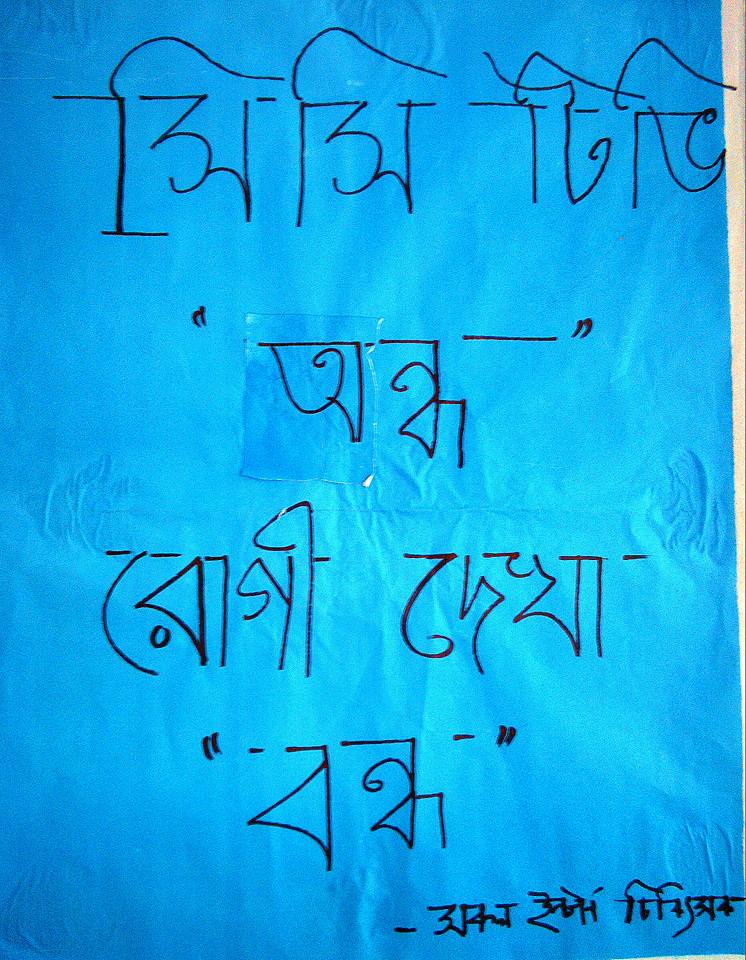 সিসি টিভি
"অন্ধ"
রোগী দেখা
"বন্ধ"
- সকল ইন্টার্ন চিকিৎসক